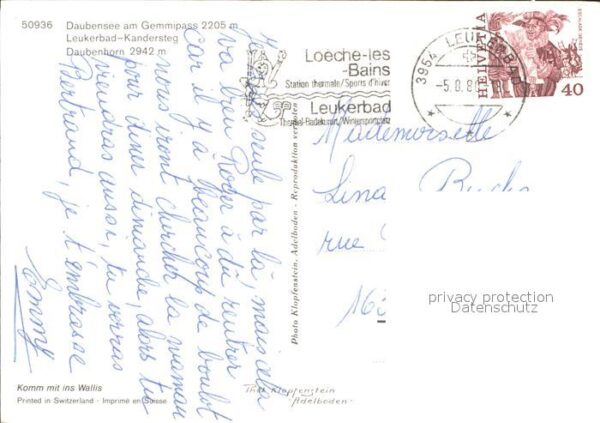 50936 Daubensee am Gemmipass 2205 m
Leukerbad-Kandersteg
Daubenhorn 2942 m
Loèche-les
-Bains
Station thermale/Sports d'hiver
Leukerbad
Thermal-Badekurort/Wintersportplatz
3954 LEUKERBAD
-5.8.8
HELVETIA
40
seule par là mais cela
va bien Roger à dû rentrer
car il y a beaucoup de boulot
nous iront chercher la maman
pour diner dimanche, alors tu
viendras aussi, tu verras
Bertrand, je t'embrasse
Emmy
Mademoiselle
Lina
rue
16
privacy protection
Datenschutz
Photo Klopfenstein, Adelboden - Reproduktion verboten
Komm mit ins Wallis
Printed in Switzerland - Imprimé en Suisse
Photo Klopfenstein
Adelboden